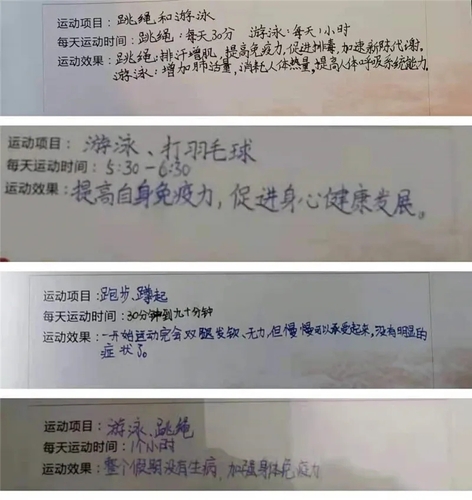 运动项目：跳绳和游泳
每天运动时间：跳绳：每天30分 游泳：每天1小时
运动效果：跳绳：排汗增肌，提高免疫力，促进排毒，加速新陈代谢。
游泳：增加肺活量，消耗人体热量，提高人体呼吸系统能力。
运动项目：游泳、打羽毛球
每天运动时间：5:30-6:30
运动效果：提高自身免疫力，促进身心健康发展。
运动项目：跑步、蹲起
每天运动时间：30分钟到九十分钟
运动效果：一开始运动完会双腿发软、无力，但慢慢可以承受起来，没有明显的
症状了。
运动项目：游泳、跳绳
每天运动时间：1个小时
运动效果：整个假期没有生病，加强身体免疫力